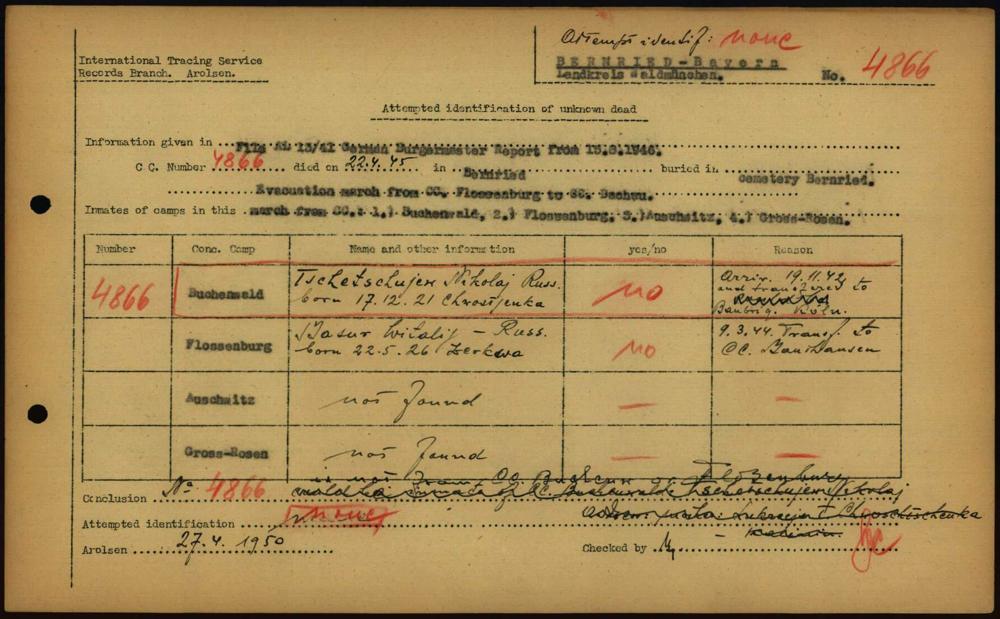 Attempt identif: none
International Tracing Service
Records Branch. Arolsen.
BERNRIED-Bayern
Landkreis Waldmünchen.
No. 4866
Attempted identification of unknown dead
Information given in File AL 13/41 German Burgermaster Report from 15.8.1946.
CC. Number 4866 died on 22.4.45 in Bernried buried in cemetery Bernried.
Evacuation march from CC. Flossenburg to CC. Dachau.
Inmates of camps in this march from CC.: 1.) Buchenwald, 2.) Flossenburg, 3.) Auschwitz, 4.) Gross-Rosen.
Number Conc. Camp Name and other information yes/no Reason
4866 Buchenwald Tschetschujew Nikolaj Russ.
born 17.12.21 Chrostjenka
no
Arriv. 19.11.42
and transfered to
Baubrig. Köln.
Flossenburg Basur Witalij - Russ.
born 22.5.26 Zerkwa
no
9.3.44 Transf. to
CC. Mauthausen
Auschwitz not found — —
Gross-Rosen not found — —
is not from CC. Buchenw. or Flossenburg
Conclusion No 4866 inmate of CC. Buchenwald: Tschetschujew Nikolaj
Attempted identification none
Arolsen 27.4.1950
Checked by